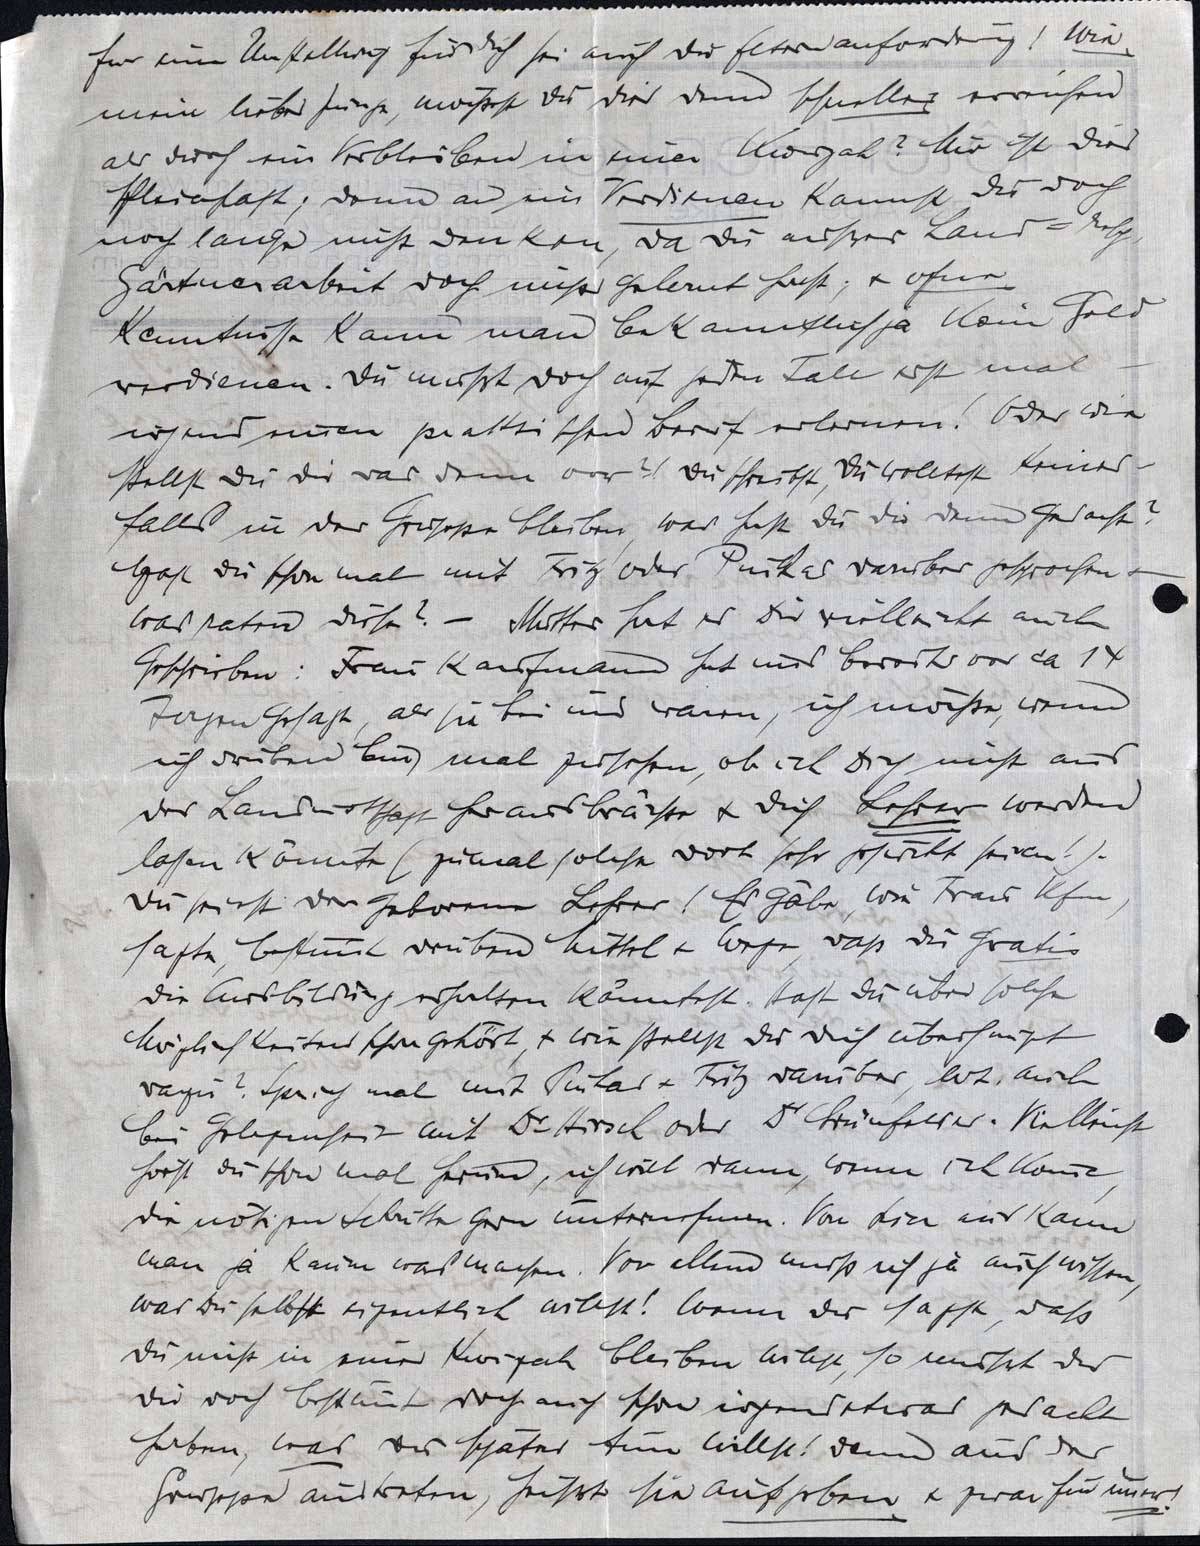 für eine Umstellung für Dich sei auch die Elternanforderung! Wie,
mein lieber Junge, möchtest Du dies denn schneller erreichen
als durch ein Verbleiben in einer Kwuzah? Mir ist dies
schleierhaft; denn an ein Verdienen kannst Du doch
noch lange nicht denken, da Du ausser Land-
Gärtnerarbeit doch nichts gelernt hast; & ohne
Kenntnisse kann man bekanntlich ja kein Geld
verdienen. Du musst doch auf jeden Fall erst mal
irgend einen praktischen Beruf erlernen! Oder wie
stellst Du Dir das denn vor?! Du schreibst, Du wolltest keines-
falls in der Gruppe bleiben, was hast Du Dir denn gedacht?
Hast Du schon mal mit Fritz oder Pinkas darüber gesprochen &
was raten diese? – Mutter hat es Dir vielleicht auch
geschrieben: Frau Kaufmann hat uns bereits vor ca 14
Tagen gesagt, als sie bei uns waren, ich möchte, wenn
ich drüben bin, mal zusehen, ob ich Dich nicht aus
der Landwirtschaft herausbrächte & Dich Lehrer werden
lassen könnte (zumal solche dort sehr gesucht seien!).
Du seiest der geborene Lehrer! Es gäbe, wie Frau Kfm,
sagte, bestimmt drüben Mittel & Wege, dass Du gratis
die Ausbildung erhalten könntest. Hast Du über solche
Möglichkeiten schon gehört, & wie stellst Du Dich überhaupt
dazu? Sprich mal mit Pinkas & Fritz darüber, evt. auch
bei Gelegenheit mit Dr Hirsch oder Dr Grünfelder. Vielleicht
hörst Du schon mal herum, ich will dann, wenn ich komme,
die nötigen Schritte gern unternehmen. Von hier aus kann
man ja kaum was machen. Vor allem muss ich ja auch wissen,
was Du selbst eigentlich willst! Wenn Du sagst, dass
Du nicht in einer Kwuzah bleiben willst, so musst Du
Dir doch bestimmt doch auch schon irgendetwas gedacht
haben, was Du später tun willst! Denn aus der
Gruppe austreten, heisst sie aufgeben & zwar für immer!